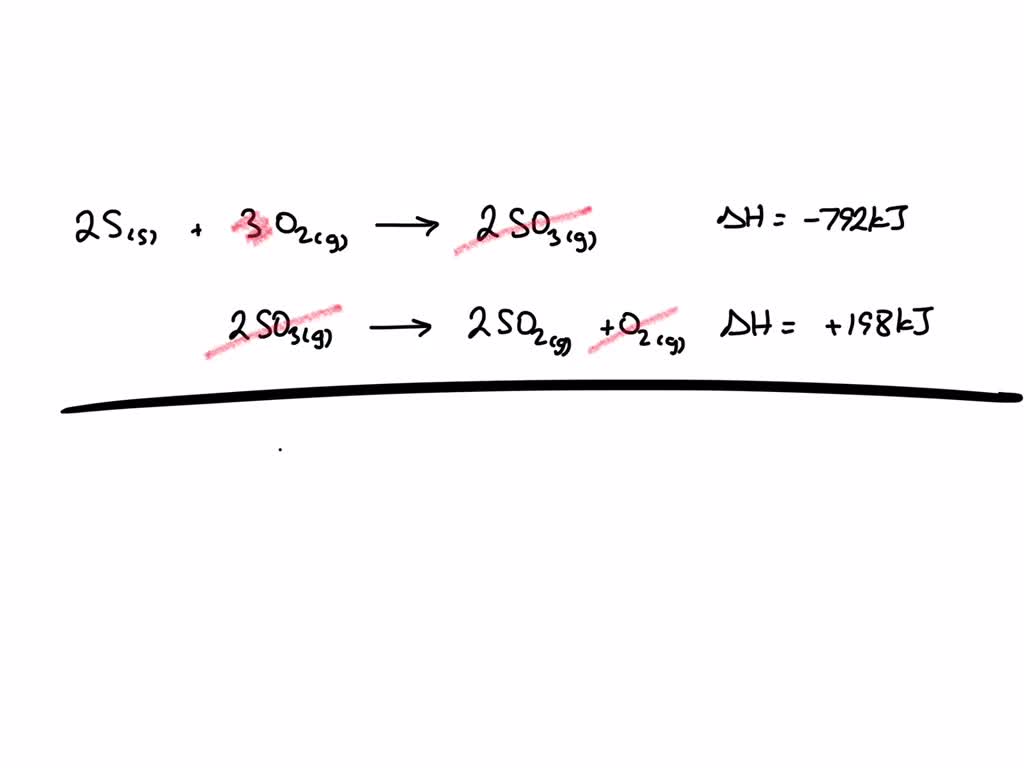 2S(s) + 3O2(g) → 2SO3(g) ΔH = -792kJ
2SO3(g) → 2SO2(g) + O2(g) ΔH = +198kJ